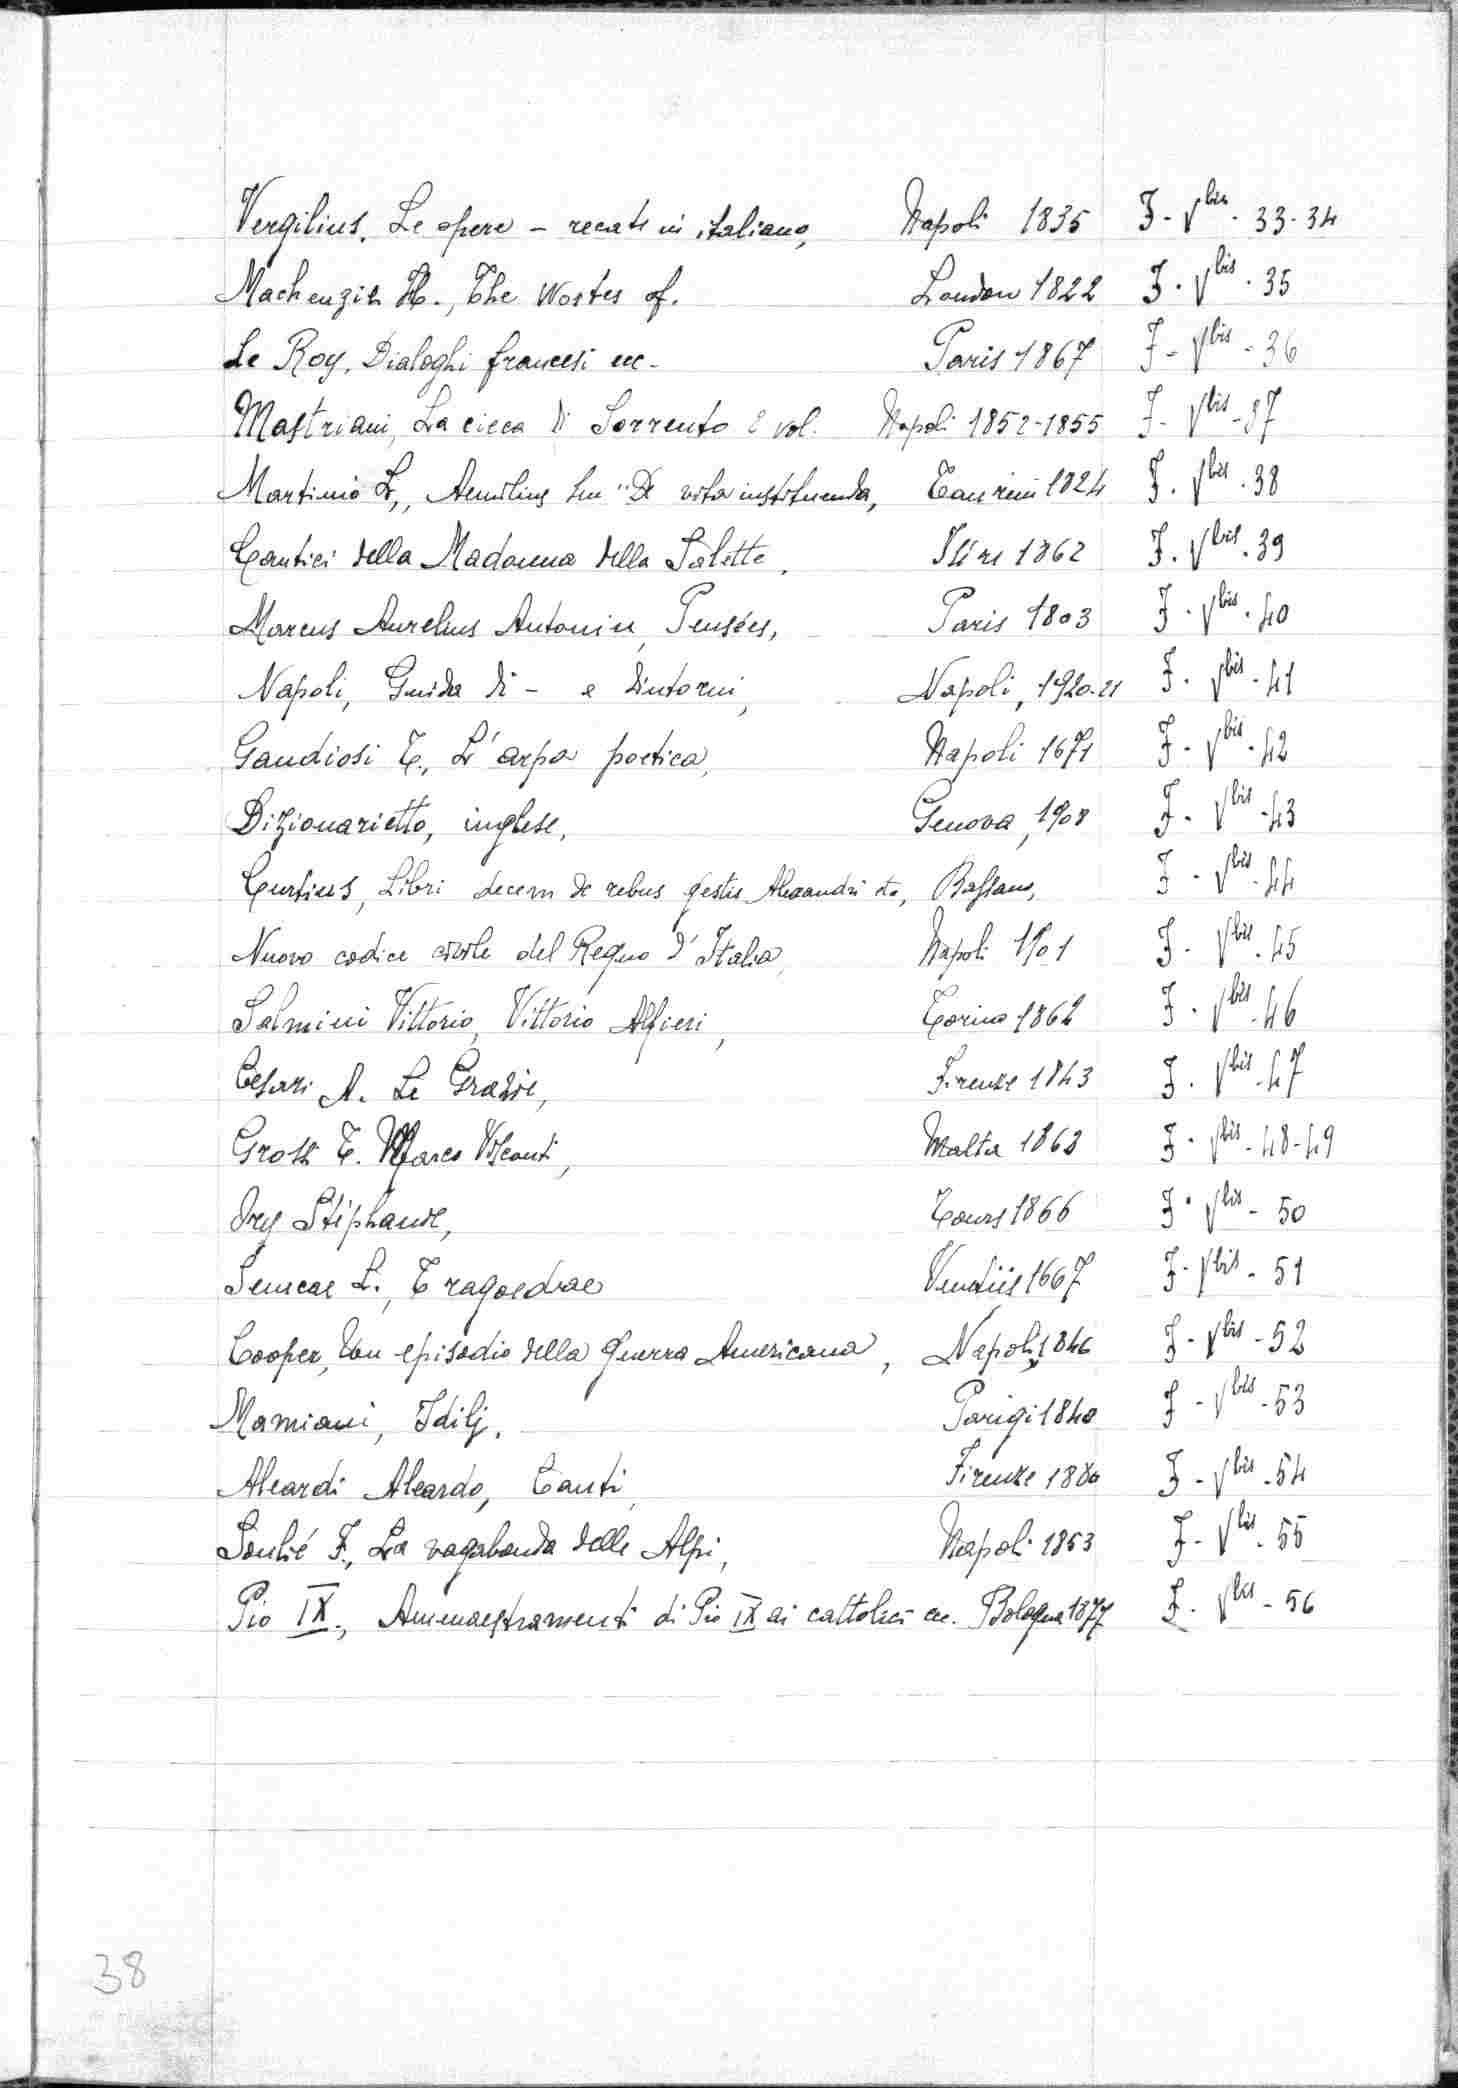 Vergilius, Le opere - recate in italiano, Napoli 1835 J - V bis - 33-34
Mackenzie H., The Wortes of. London 1822 J - V bis - 35
Le Roy, Dialoghi francesi ecc. Paris 1867 J - V bis - 36
Mastriani, La cieca di Sorrento 2 vol. Napoli 1852-1855 J - V bis - 37
Martinio L., Aemilius seu "De vita instituenda, Taurini 1824 J - V bis - 38
Cantici della Madonna della Salette, 1862 J - V bis - 39
Marcus Aurelius Antonin, Pensées, Paris 1803 J - V bis - 40
Napoli, Guida di - e dintorni, Napoli, 1920-21 J - V bis - 41
Gaudiosi T., L'arpa poetica, Napoli 1671 J - V bis - 42
Dizionarietto, inglese, Genova, 1908 J - V bis - 43
Curtius, Libri decem de rebus gestis Alexandri etc, Bassano, J - V bis - 44
Nuovo codice civile del Regno d'Italia, Napoli 1901 J - V bis - 45
Salmini Vittorio, Vittorio Alfieri, Torino 1862 J - V bis - 46
Cesari A. Le Grazie, Firenze 1843 J - V bis - 47
Grossi T. Marco Visconti, Malta 1863 J - V bis - 48-49
Ory Stéphanie, Tours 1866 J - V bis - 50
Senecae L., Tragoediae Venetiis 1667 J - V bis - 51
Cooper, Un episodio della guerra Americana, Napoli, 1846 J - V bis - 52
Mamiani, Idilj, Parigi 1840 J - V bis - 53
Aleardi Aleardo, Canti, Firenze 1880 J - V bis - 54
Soulié F., La vagabonda delle Alpi, Napoli 1853 J - V bis - 55
Pio IX., Ammaestramenti di Pio IX ai cattolici ecc. Bologna 1877 J - V bis - 56
38